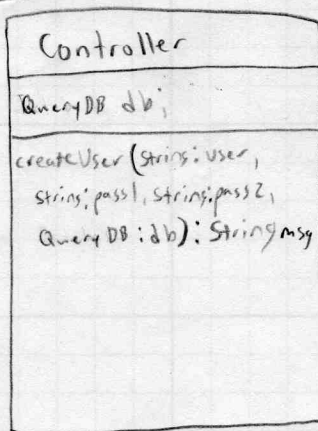 Controller
QueryDB db;
createUser(string: user,
string: pass1, string: pass2,
QueryDB : db): String msg